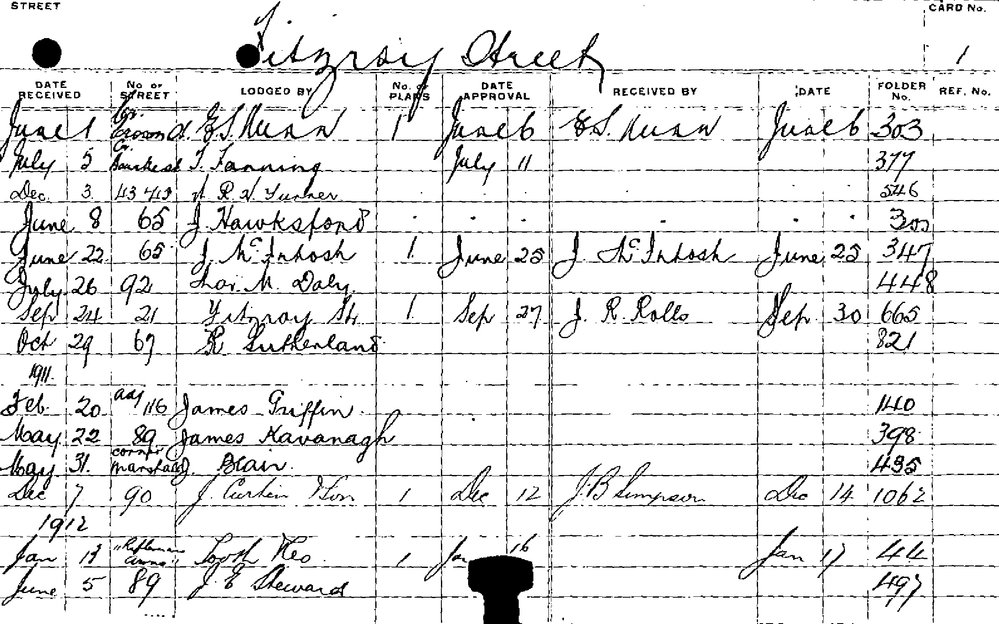 STREET Fitzroy Street CARD No. 1
DATE RECEIVED No. OF STREET LODGED BY No. of PLANS DATE APPROVAL RECEIVED BY DATE FOLDER No. REF. No.
June 1 Cr. Crown St. E.S. Nunn 1 June 6 E.S. Nunn June 6 303
July 5 Cr. Bourke St T. Fanning July 11 377
Dec. 3 R. H. Turner 546
June 8 65 J Hawksford
June 22 65 J. McIntosh 1 June 25 J McIntosh June 25 347
July 26 92 M. Daly 448
Sep 24 21 Fitzroy St. 1 Sep 27 J. R. Rolls Sep 30 665
Oct 29 67 R Sutherland 821
1911.
Feb 20 adj 116 James Griffin 140
May 22 89 James Kavanagh 398
May 31. corner Marshall J. Blair. 435
Dec 7 90 J. Curtin & Son 1 Dec 12 J.B Simpson Dec 14 1062
1912
Jan "Rifleman Arms" Tooth 1 Jan 16 Jan 17 44
June 5 89 J E Steward 497